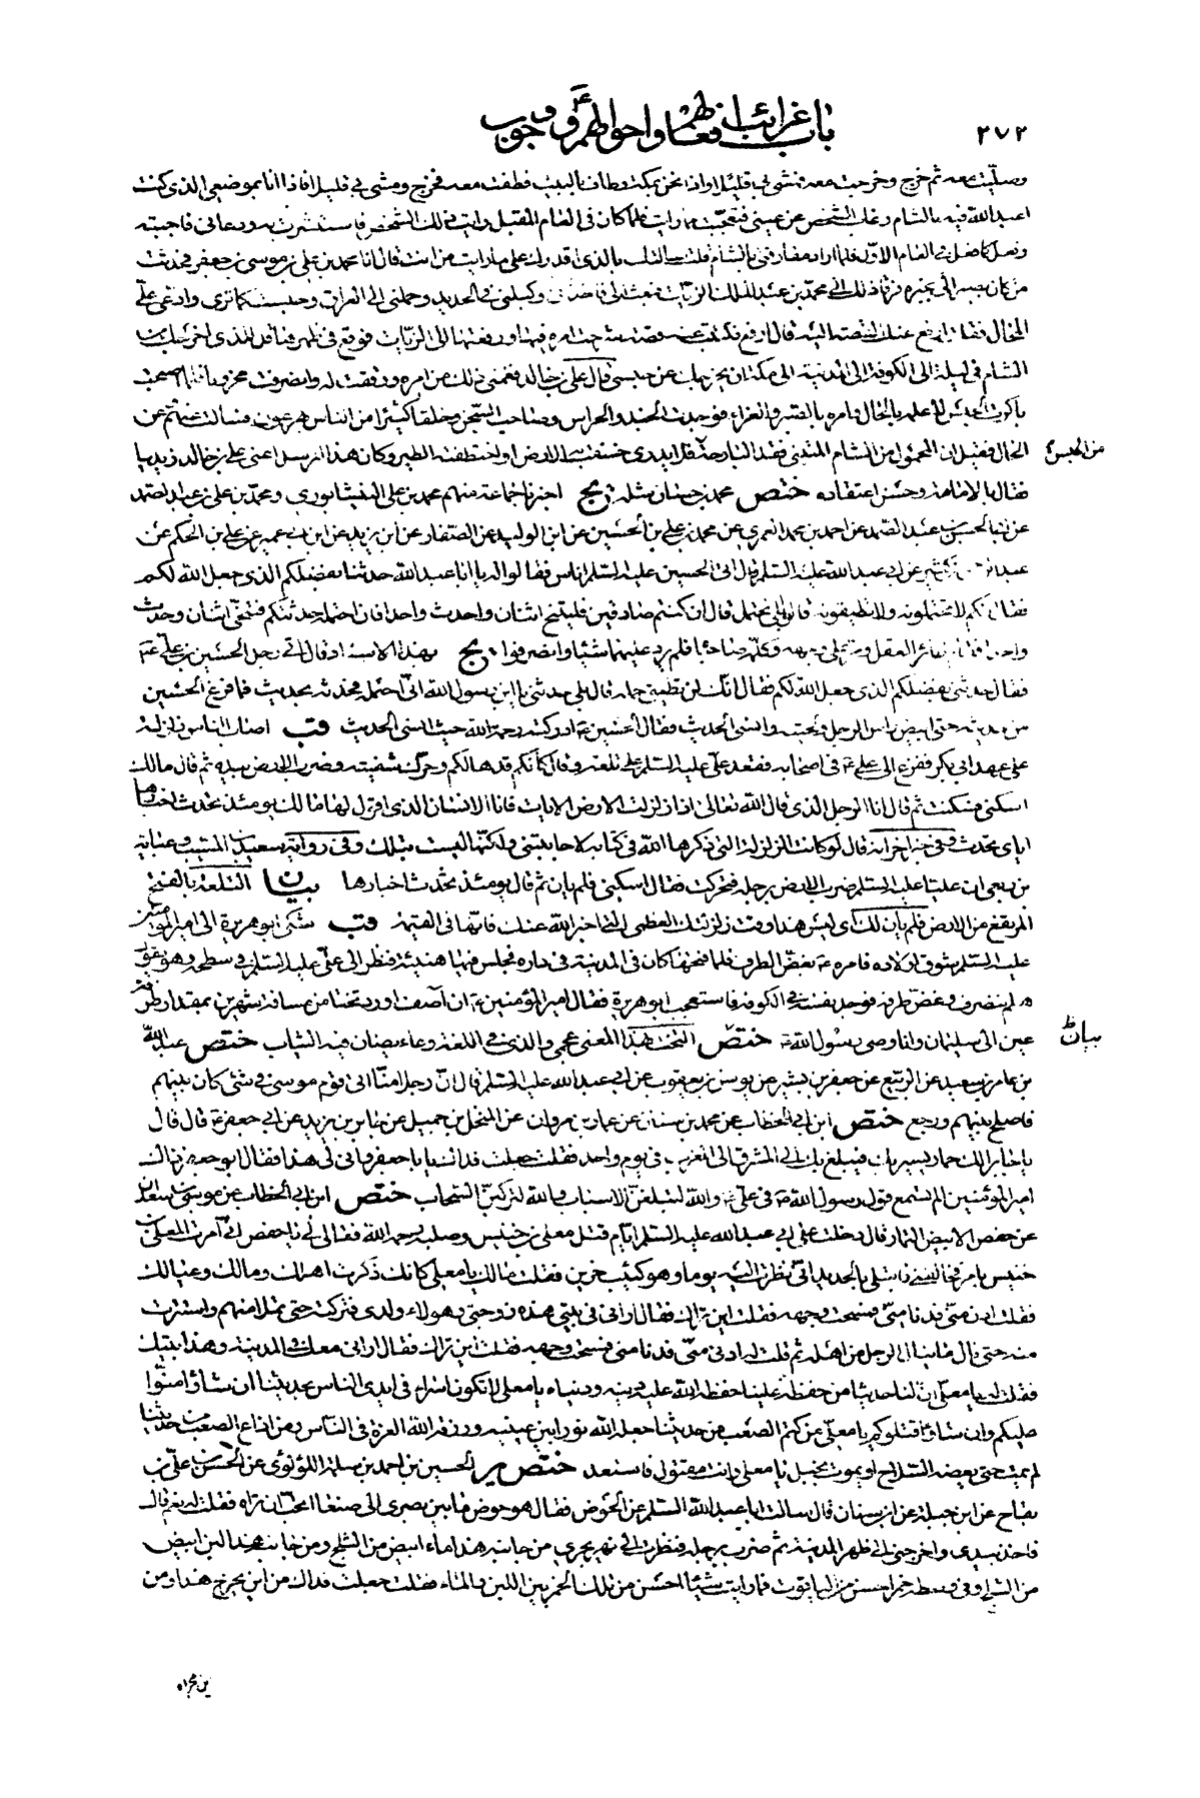 باب غرائب افعالهم واحوالهم ووجوب
٢٧٢
وصليت معه ثم خرج وخرجت معه فمشى بي قليلا واذا نحن بمكة وطاف بالبيت فطفت معه فخرج ومشى بي قليلا فاذا انا بموضعي الذي كنت
اعبد الله فيه بالشام وغاب الشخص عن عيني فتعجبت مما رايت فلما كان في العام المقبل رايت ذلك الشخص فاستبشرت به ودعاني فاجبته
وفعل كما فعل في العام الاول فلما اراد مفارقتي بالشام قلت سالتك بالذي اقدرك على ما رايت من انت قال انا محمد بن علي بن موسى بن جعفر فحدثت
من كان يصير الى بخبره فرقي ذلك الى محمد بن عبد الملك الزيات فبعث الي فاخذني وكبلني في الحديد وحملني الى العراق وحبست كما ترى وادعي علي
المحال فقلت ارفع عنك القصة اليه قال ارفع فكتبت عنه قصة شرحت امره فيها ورفعتها الى الزيات فوقع في ظهرها قل للذي اخرجك من
الشام في ليلة الى الكوفة الى المدينة الى مكة ان يخرجك من حبسي قال علي بن خالد فغمني ذلك من امره ورققت له وانصرفت محزونا فلما اصبحت
باكرت الحبس لاعلمه بالحال وامره بالصبر والعزاء فوجدت الجند والحراس وصاحب السجن وخلقا كثيرا من الناس يهرعون فسالت عنهم عن
الحال فقيل ان المحمول من الشام المتنبي فقد البارحة فلا يدرى خسفت به الارض او اختطفته الطير وكان هذا المرسل اعني علي بن خالد زيديا
من الحبس
فقال بالامامة وحسن اعتقاده ختص محمد بن حسان مثله يج اخبرنا جماعة منهم محمد بن علي النيشابوري ومحمد بن علي بن عبد الصمد
عن ابي الحسن بن عبد الصمد عن احمد بن محمد العمري عن محمد بن علي بن الحسين عن ابن الوليد عن الصفار عن ابن يزيد عن ابن ابي عمير عن علي بن الحكم عن
عبد الرحمن بن كثير عن ابي عبد الله عليه السلم قال اتى الحسين عليه السلم اناس فقالوا له يا ابا عبد الله حدثنا بفضلكم الذي جعل الله لكم
فقال انكم لا تحتملونه ولا تطيقونه قالوا بلى نحتمل قال ان كنتم صادقين فليتنح اثنان واحدث واحدا فان احتمله حدثتكم فتنحى اثنان وحدث
واحدا فقام طائر العقل ومر على وجهه وكلمه صاحباه فلم يرد عليهما شيئا وانصرفوا يج بهذا الاسناد قال اتى رجل الحسين بن علي ع
فقال حدثني بفضلكم الذي جعل الله لكم فقال انك لن تطيق حمله قال بلى حدثني يا ابن رسول الله اني احتمله فحدثه بحديث فما فرغ الحسين
من حديثه حتى ابيض راس الرجل ولحيته وانسي الحديث فقال الحسين ع ادركته رحمة الله حيث انسي الحديث قب اصاب الناس زلزلة
على عهد ابي بكر ففزع الى علي ع في اصحابه فقعد علي عليه السلم على تلعة وقال كانكم قد هالكم وحرك شفتيه وضرب الارض بيده ثم قال مالك
اسكني فسكنت ثم قال انا الرجل الذي قال الله تعالى اذا زلزلت الارض الايات فانا الانسان الذي اقول لها مالك يومئذ تحدث اخبارها
اياي تحدث وفي خبر اخر انه قال لو كانت الزلزلة التي ذكرها الله في كتابه لاجابتني ولكنها ليست بتلك وفي رواية سعيد بن المسيب وعباية
بن ربعي ان عليا عليه السلم ضرب الارض برجله فتحركت فقال اسكني فلم يان ثم قال يومئذ تحدث اخبارها بيان التلعة بالفتح
المرتفع من الارض فلم يان لك اي ليس هذا وقت زلزلتك العظمى التي اخبر الله عنك فانها في القيمة قب شكى ابو هريرة الى امير المؤمنين
عليه السلم شوق اولاده فامره ع بغض الطرف فلما فتحه كان في المدينة في داره فجلس فيها هنيئة فنظر الى علي عليه السلم في سطحه وهو يقول
هلم ننصرف وغض طرفه فوجد نفسه في الكوفة فاستعجب ابو هريرة فقال امير المؤمنين ع ان آصف اورد تختا من مسافة شهرين بمقدار طرفة
عين الى سليمان وانا وصي رسول الله ص ختص التخت بهذا المعنى عجمي والذي في اللغة وعاء يصان فيه الثياب ختص عبد الله
بيان
بن عامر بن سعيد عن الربيع عن جعفر بن بشير عن يونس بن يعقوب عن ابي عبد الله عليه السلم قال ان رجلا منا اتى قوم موسى في شئ كان بينهم
فاصلح بينهم ورجع ختص ابن ابي الخطاب عن محمد بن سنان عن عمار بن مروان عن المنخل بن جميل عن جابر بن يزيد عن ابي جعفر ع قال قال
يا جابر الك حمار يسير بك فيبلغ بك الى المشرق الى المغرب في يوم واحد فقلت جعلت فداك يا ابا جعفر واني لي هذا فقال ابو جعفر ذاك
امير المؤمنين الم تسمع قول رسول الله ص في علي ع والله لتبلغن الاسباب والله لتركبن السحاب ختص ابن ابي الخطاب عن موسى بن سعدان
عن حفص الابيض التمار قال دخلت على ابي عبد الله عليه السلم ايام قتل معلى بن خنيس وصلبه رحمه الله فقال لي يا حفص اني امرت المعلى بن
خنيس بامر فخالفني فابتلي بالحديد اني نظرت اليه يوما وهو كئيب حزين فقلت مالك يا معلى كانك ذكرت اهلك ومالك وعيالك
فقلت ادن مني فدنا مني فمسحت وجهه فقلت اين تراك فقال اراني في بيتي هذه زوجتي وهولاء ولدي فتركته حتى تملا منهم واستترت
منه حتى نال ما ينال الرجل من اهله ثم قلت له ادن مني فدنا مني فمسحت وجهه فقلت اين تراك فقال اراني معك في المدينة وهذا بيتك
فقلت له يا معلى ان لنا حديثا من حفظه علينا حفظه الله عليه دينه ودنياه يا معلى لا تكونوا اسراء في ايدي الناس بحديثنا ان شاؤا منوا
عليكم وان شاؤا قتلوكم يا معلى من كتم الصعب من حديثنا جعله الله نورا بين عينيه ورزقه الله العزة في الناس ومن اذاع الصعب من حديثنا
لم يمت حتى يعضه السلاح او يموت بخبل يا معلى وانت مقتول فاستعد ختص ير الحسين بن احمد بن سلمة اللؤلؤي عن الحسن بن علي بن
بقاح عن ابن جبلة عن ابن سنان قال سالت ابا عبد الله السلم عن الحوض فقال هو حوض ما بين بصرى الى صنعا اتحب ان تراه فقلت له نعم قال
فاخذ بيدي واخرجني الى ظهر المدينة ثم ضرب برجله فنظرت الى نهر يجري من جانبه هذا ماء ابيض من الثلج ومن جانبه هذا لبن ابيض
من الثلج وفي وسطه خمر احسن من الياقوت فما رايت شيئا احسن من تلك الخمر بين اللبن والماء فقلت جعلت فداك من اين يخرج هذا ومن
اين مجراه